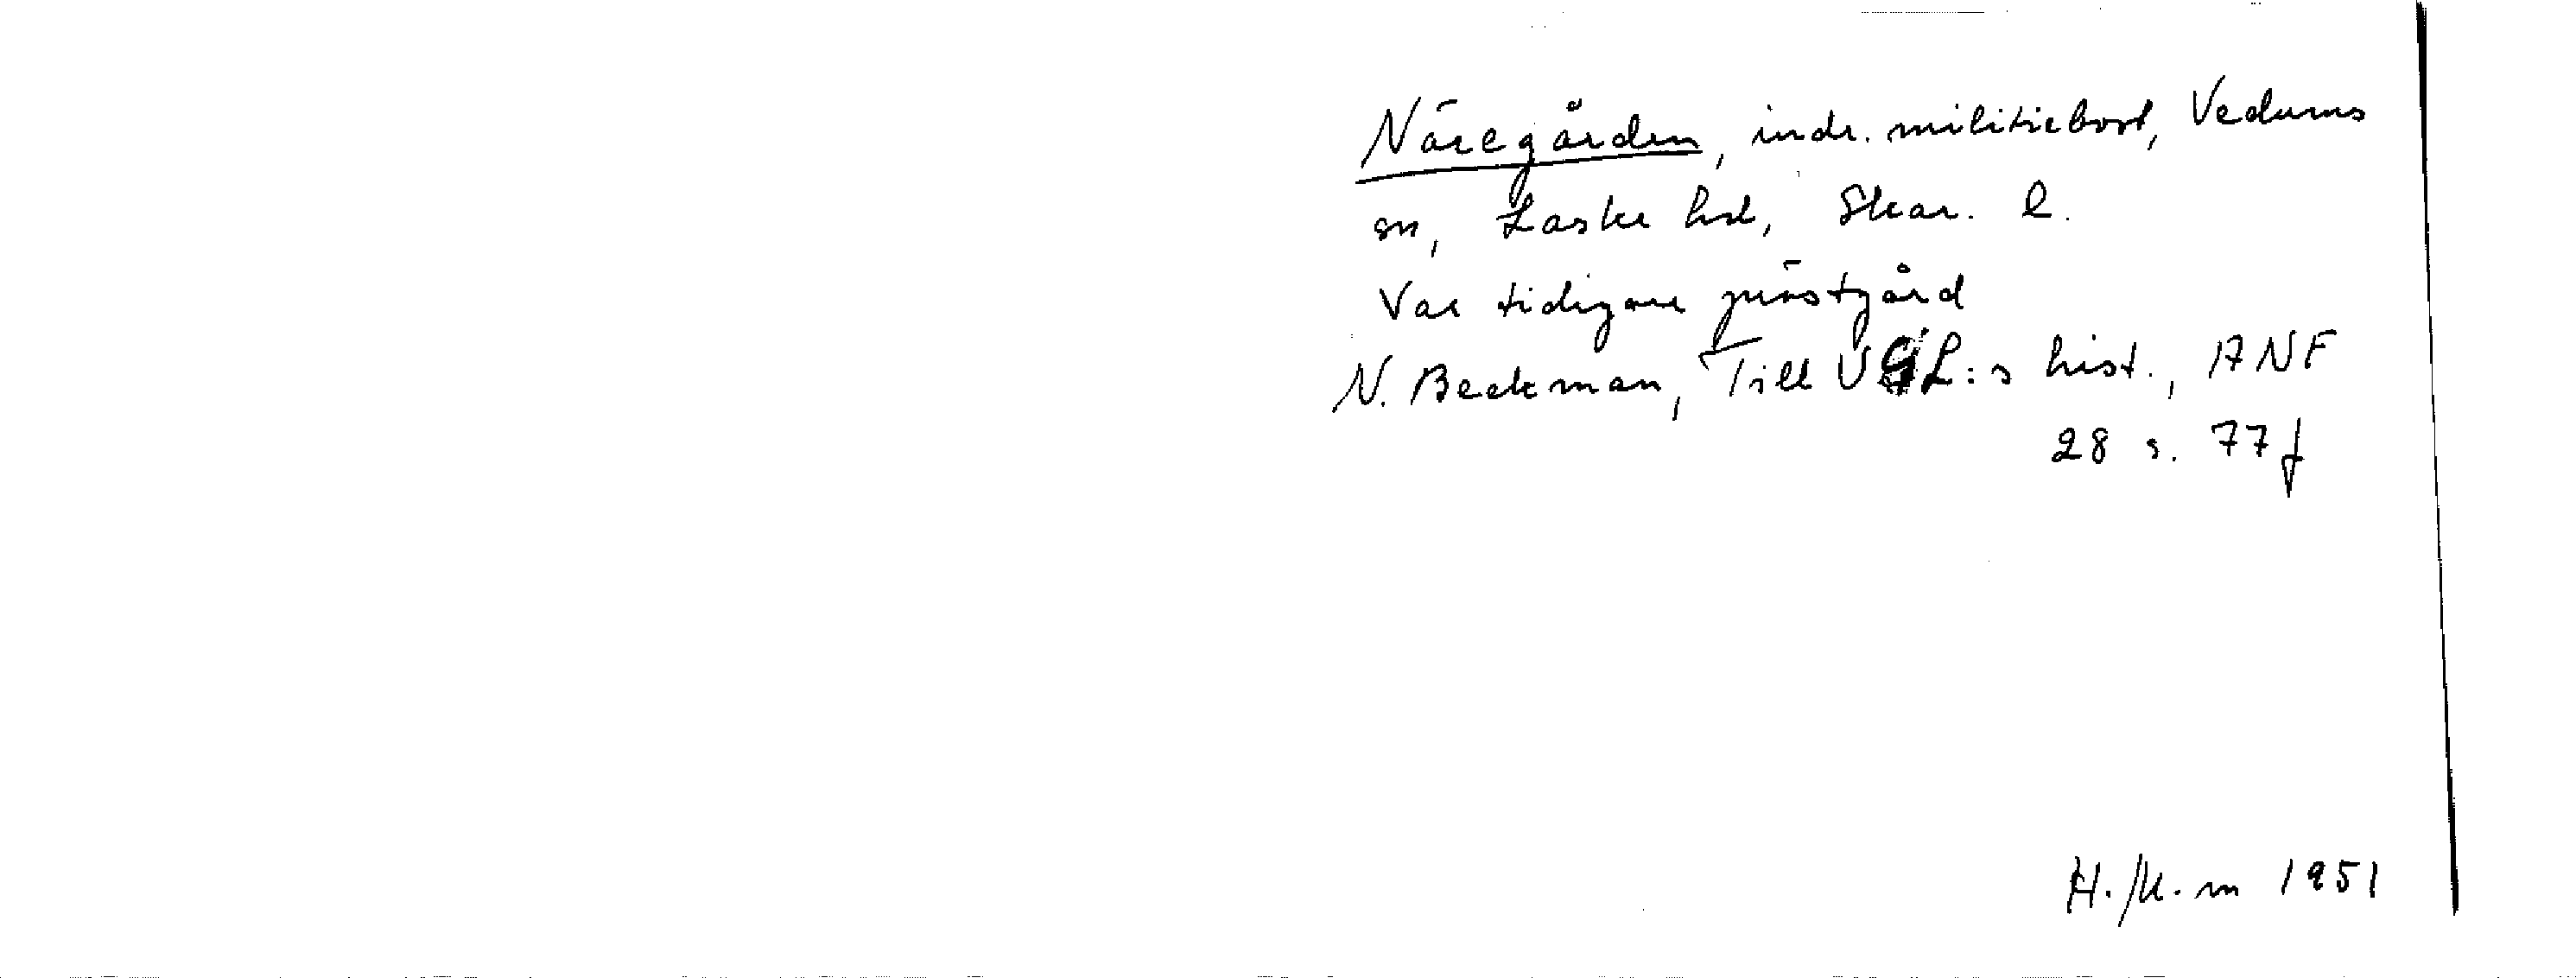 Näregården, indr. militiebost, Vedums
sn, Laske hd, Skar. l.
Var tidigare prästgård
N. Beckman, Till VGL:s hist., ANF
28 s. 77 f
H. m 1951